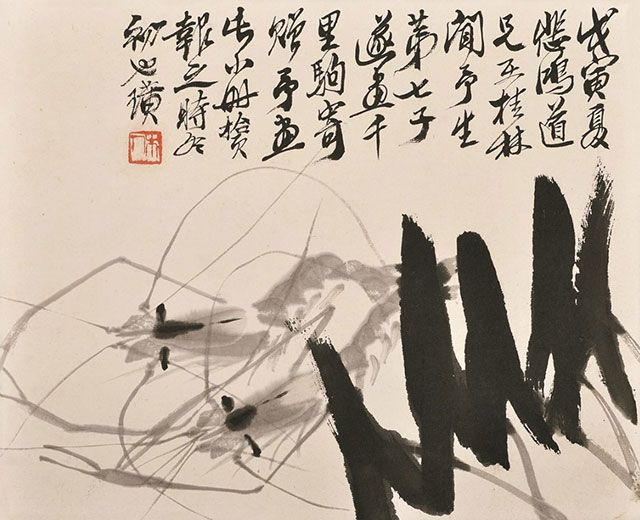 戊寅夏
悲鴻道
兄在桂林
聞予生
第七子
遂畫千
里駒寄
贈予畫
此小冊
報之時冬
初也璜
木人